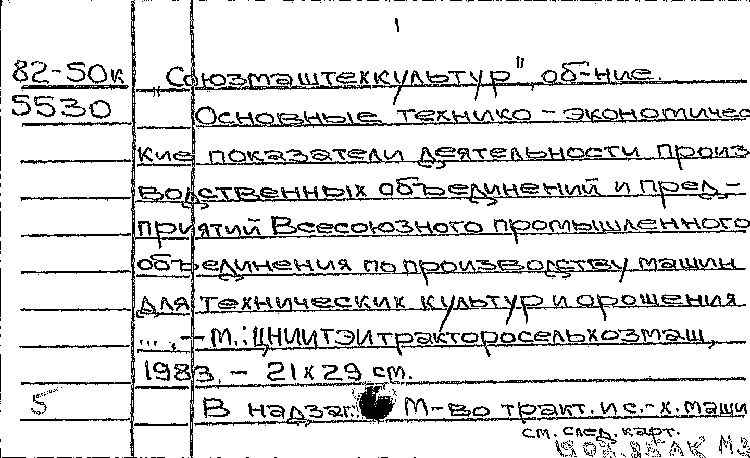 1
82-50к „Союзмаштехкультур", об-ние.
5530 Основные технико-экономичес
кие показатели деятельности произ
водственных объединений и пред-
приятий Всесоюзного промышленного
объединения по производству машин
для технических культур и орошения
... .- М.: ЦНИИТЭИтракторосельхозмаш,
1983. - 21 х 29 см.
5 В надзаг.: М-во тракт. и с.-х. маши
см. след. карт.